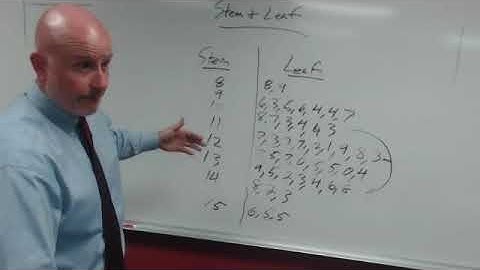 Stem + Leaf
Stem Leaf
8 8, 4
9 6, 3, 6, 6, 4, 4, 7
8, 7, 3, 4, 4, 3
11 7, 3, 7, 7, 3, 1, 4, 8, 3
12 5, 7, 6, 5, 5, 0, 4
13 9, 5, 2, 3, 4, 6, 6
14 8, 2, 3
15 6, 5, 5